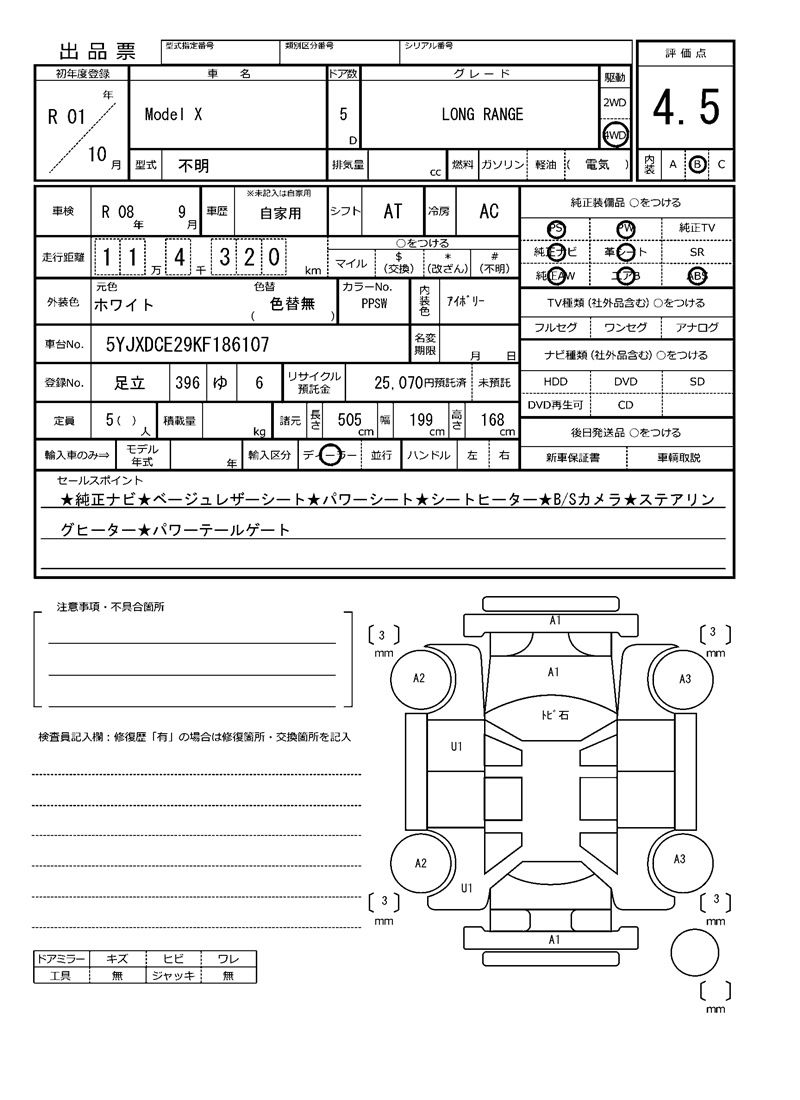 出品票
型式指定番号 類別区分番号 シリアル番号
評価点
4.5
内装 A B C
初年度登録 車名 ドア数 グレード 駆動
R 01 年 10 月
Model X
5 D
LONG RANGE
2WD
4WD
型式 不明 排気量 cc 燃料 ガソリン 軽油 ( 電気 )
車検 R 08 年 9 月 車歴 ※未記入は自家用 自家用 シフト AT 冷房 AC
走行距離 1 1 万 4 千 3 2 0 km
○をつける
マイル $ (交換) * (改ざん) # (不明)
外装色 元色 ホワイト 色替 ( 色替無 ) カラーNo. PPSW 内装色 ｱｲﾎﾞﾘｰ
車台No. 5YJXDCE29KF186107 名変期限 月 日
登録No. 足立 396 ゆ 6 リサイクル預託金 25,070円預託済 未預託
定員 5( ) 人 積載量 kg 諸元 長さ 505 cm 幅 199 cm 高さ 168 cm
輸入車のみ⇒ モデル年式 年 輸入区分 ディーラー 並行 ハンドル 左 右
純正装備品 ○をつける
PS PW 純正TV
純正ナビ 革シート SR
純正AW エアB ABS
TV種類 (社外品含む) ○をつける
フルセグ ワンセグ アナログ
ナビ種類 (社外品含む) ○をつける
HDD DVD SD
DVD再生可 CD
後日発送品 ○をつける
新車保証書 車輌取説
セールスポイント
★純正ナビ★ベージュレザーシート★パワーシート★シートヒーター★B/Sカメラ★ステアリン
グヒーター★パワーテールゲート
注意事項・不具合箇所
検査員記入欄：修復歴「有」の場合は修復箇所・交換箇所を記入
ドアミラー キズ ヒビ ワレ
工具 無 ジャッキ 無
A1
3 mm
3 mm
A2
A1
A3
ﾄﾋﾞ石
U1
A2
A3
U1
3 mm
3 mm
A1
mm